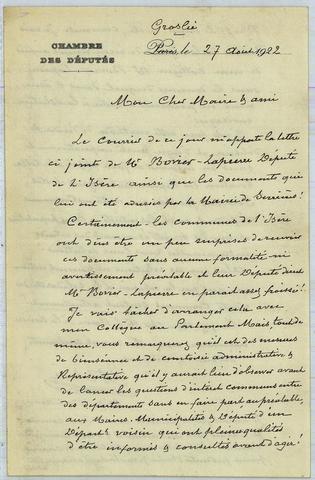 Groslée
CHAMBRE
DES DÉPUTÉS
Paris, le 27 Août 1922
Mon Cher Maire & ami
Le Courrier de ce jour m'apporte la lettre
ci joint de Mr Bovier-Lapierre Député
de l'Isère ainsi que les documents qui
lui ont été adressés par la Mairie de
Certainement les communes de l'Isère
ont dues être un peu surprises de recevoir
ces documents sans aucune formalité ni
avertissement préalable et leur Député
Mr Bovier-Lapierre en parait assez froissé!
Je vais tacher d'arranger cela avec
mon Collègue au Parlement Mais, tout de
même, vous remarquerez qu'il est des mesures
de bienséance et de courtoisie administrative &
Représentative qu'il y aurait lieu d'observer avant
de lancer les questions d'intérêt communes entre
des départements sans en faire part au préalable,
aux Maires, Municipalités & Député d'un
Départt voisin qui ont pleine qualités
d'être informés & consultés avant d'agir!